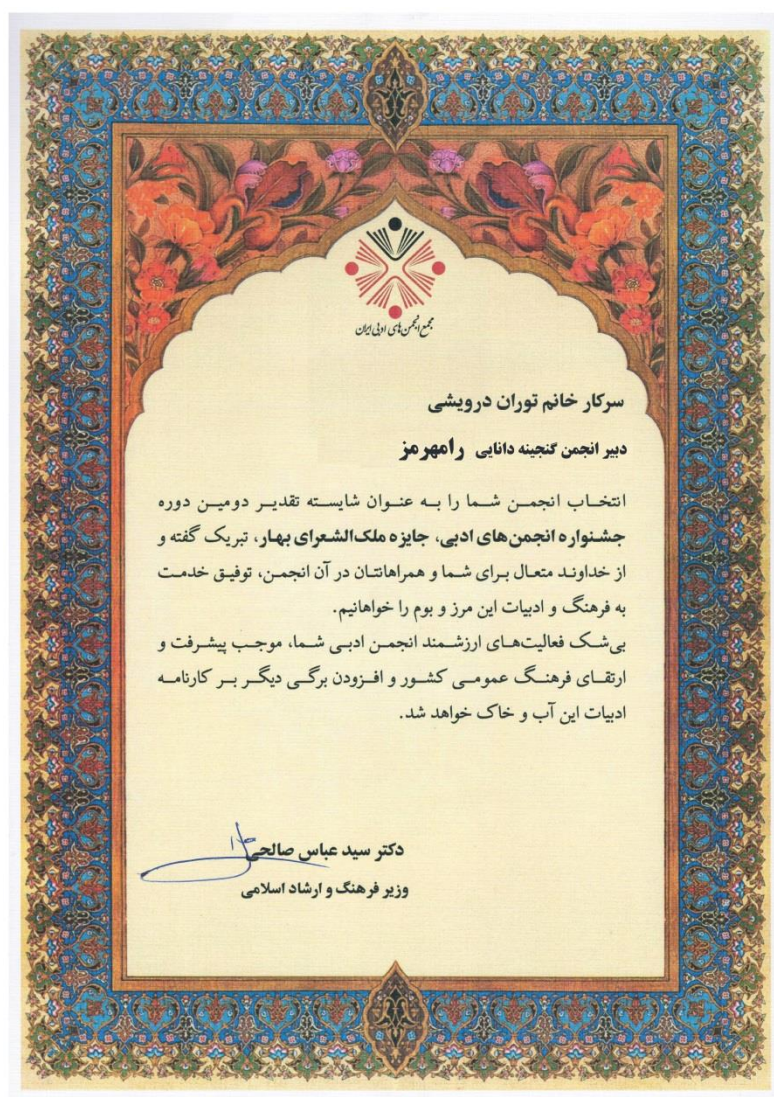 مجمع انجمن‌های ادبی ایران
سرکار خانم توران درویشی
دبیر انجمن گنجینه دانایی رامهرمز
انتخاب انجمن شما را به عنوان شایسته تقدیر دومین دوره
جشنواره انجمن‌های ادبی، جایزه ملک‌الشعرای بهار، تبریک گفته و
از خداوند متعال برای شما و همراهانتان در آن انجمن، توفیق خدمت
به فرهنگ و ادبیات این مرز و بوم را خواهانیم.
بی‌شک فعالیت‌های ارزشمند انجمن ادبی شما، موجب پیشرفت و
ارتقای فرهنگ عمومی کشور و افزودن برگی دیگر بر کارنامه
ادبیات این آب و خاک خواهد شد.
دکتر سید عباس صالحی
وزیر فرهنگ و ارشاد اسلامی